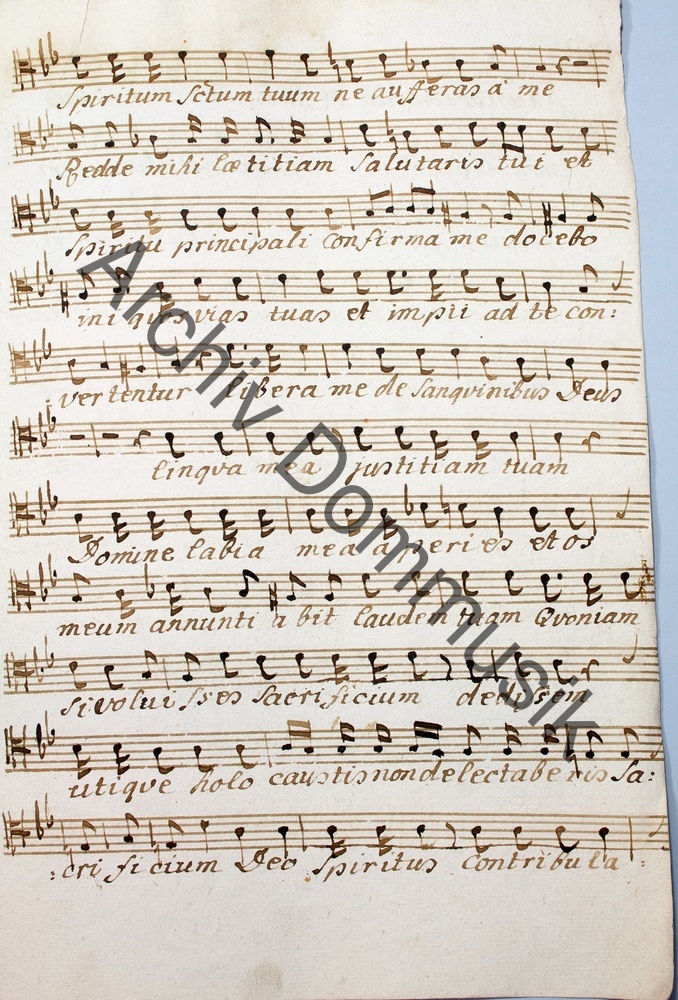 Spiritum Sctum tuum ne aufferas à me
Redde mihi lætitiam salutaris tui et
Spiritu principali Confirma me docebo
iniquos vias tuas et impii ad te con:
vertentur libera me de sanqvinibus Deus
linqva mea justitiam tuam
Domine labia mea aperies et os
meum annunti abit laudem tuam Qvoniam
si voluisses sacrificium dedissem
utiqve holo caustis non delectaberis sa:
:cri ficium Deo Spiritus Contribula:
Archiv Dommusik